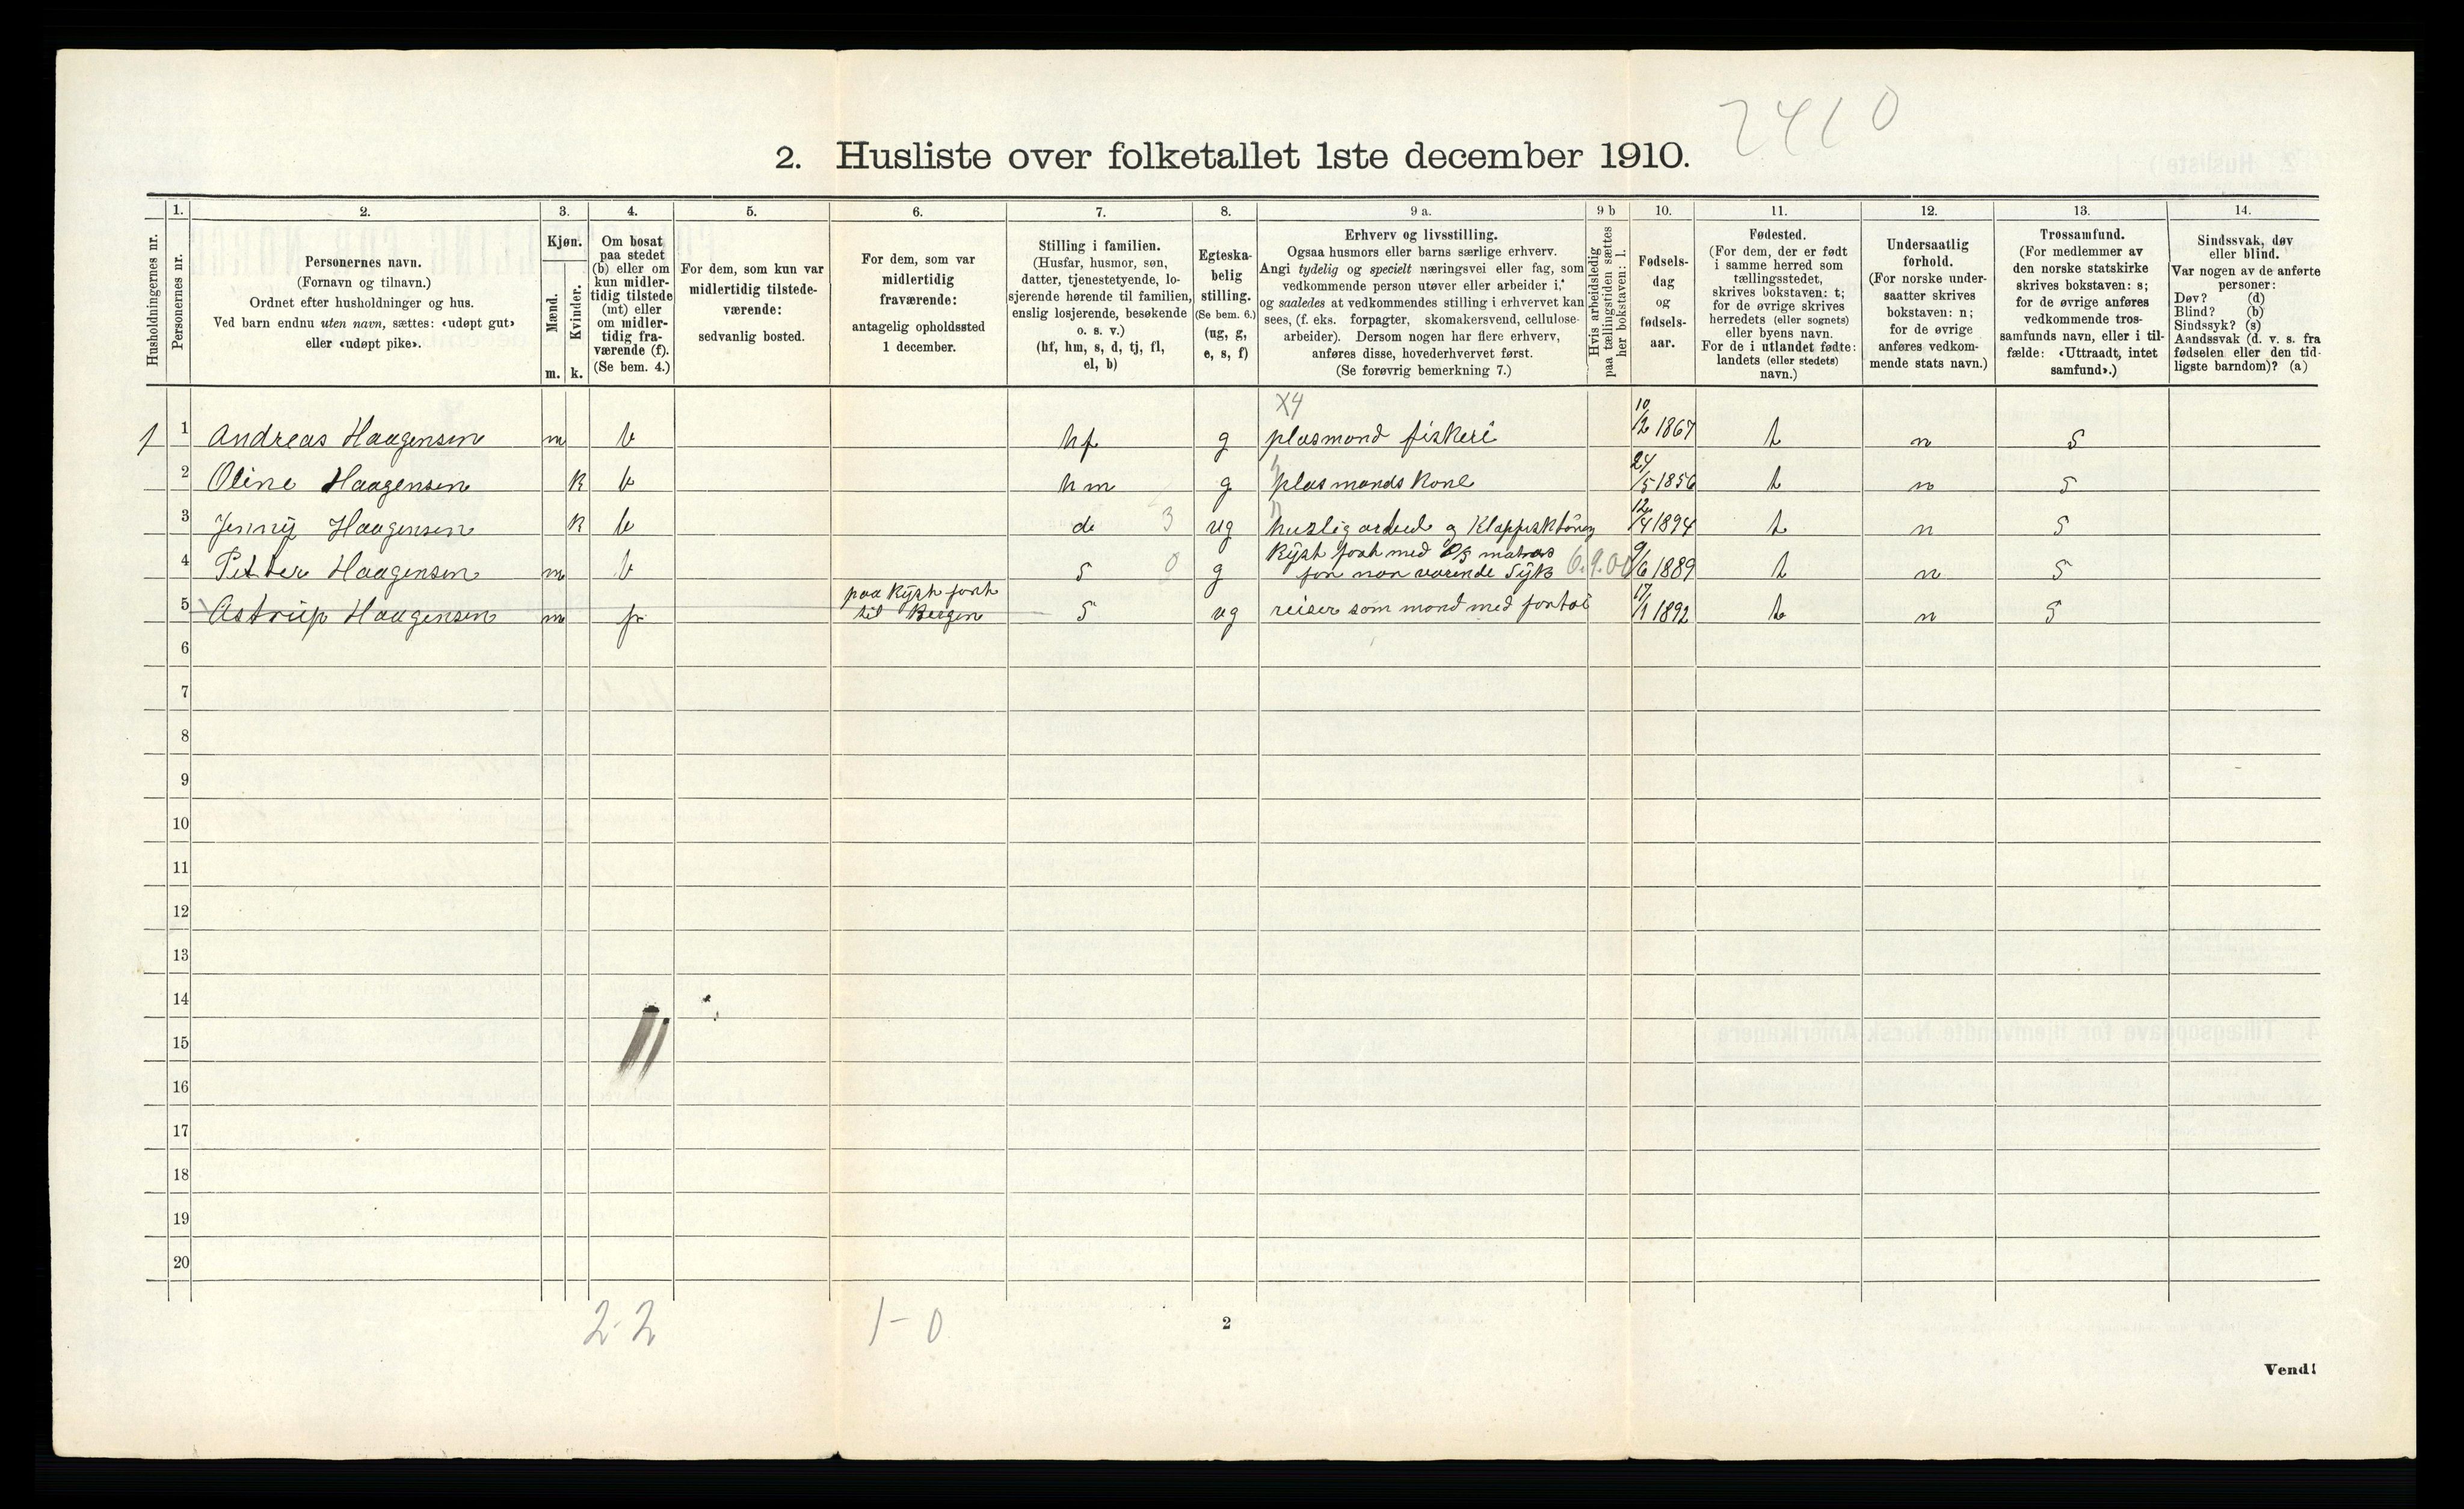 2410
2. Husliste over folketallet 1ste december 1910.
Husholdningernes nr.
1.
Personernes nr.
2.
Personernes navn.
(Fornavn og tilnavn.)
Ordnet efter husholdninger og hus.
Ved barn endnu uten navn, sættes: «udøpt gut»
eller «udøpt pike».
3.
Kjøn.
Mænd.
Kvinder.
m. k.
4.
Om bosat
paa stedet
(b) eller om
kun midler-
tidig tilstede
(mt) eller
om midler-
tidig fra-
værende (f).
(Se bem. 4.)
5.
For dem, som kun var
midlertidig tilstede-
værende:
sedvanlig bosted.
6.
For dem, som var
midlertidig
fraværende:
antagelig opholdssted
1 december.
7.
Stilling i familien.
(Husfar, husmor, søn,
datter, tjenestetyende, lo-
sjerende hørende til familien,
enslig losjerende, besøkende
o. s. v.)
(hf, hm, s, d, tj, fl,
el, b)
8.
Egteska-
belig
stilling.
(Se bem. 6.)
(ug, g,
e, s, f)
9 a.
Erhverv og livsstilling.
Ogsaa husmors eller barns særlige erhverv.
Angi tydelig og specielt næringsvei eller fag, som
vedkommende person utøver eller arbeider i,
og saaledes at vedkommendes stilling i erhvervet kan
sees, (f. eks. forpagter, skomakersvend, cellulose-
arbeider). Dersom nogen har flere erhverv,
anføres disse, hovederhvervet først.
(Se forøvrig bemerkning 7.)
9 b
Hvis arbeidsledig
paa tællingstiden sættes
her bokstaven: l.
10.
Fødsels-
dag
og
fødsels-
aar.
11.
Fødested.
(For dem, der er født
i samme herred som
tællingsstedet,
skrives bokstaven: t;
for de øvrige skrives
herredets (eller sognets)
eller byens navn.
For de i utlandet fødte:
landets (eller stedets)
navn.)
12.
Undersaatlig
forhold.
(For norske under-
saatter skrives
bokstaven: n;
for de øvrige
anføres vedkom-
mende stats navn.)
13.
Trossamfund.
(For medlemmer av
den norske statskirke
skrives bokstaven: s;
for de øvrige anføres
vedkommende tros-
samfunds navn, eller i til-
fælde: «Uttraadt, intet
samfund».)
14.
Sindssvak, døv
eller blind.
Var nogen av de anførte
personer:
Døv? (d)
Blind? (b)
Sindssyk? (s)
Aandssvak (d. v. s. fra
fødselen eller den tid-
ligste barndom)? (a)
X4
1 1 Andreas Haagensen m b hf g plasmand fiskeri 10/2 1867 t n s
2 Oline Haagensen k b hm g plasmands kone 24/5 1856 t n s
3 Jenny Haagensen k b d 3 ug huslig 12/4 1894 t n s
4 Petter Haagensen m b s 0 g Kyst med matros
for nærværende Syk 9/6 1889 t n s
5 Astrup Haagensen m f paa Kyst
til Bergen s ug reiser som mand med 17/1 1892 t n s
6
7
8
9
10
11
12
13
14
15
16
17
18
19
20
2-2 1-0
2
Vend!